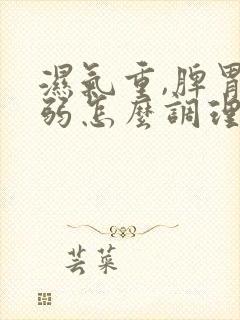 濕氣重,脾胃
弱怎麼調理
芸菜